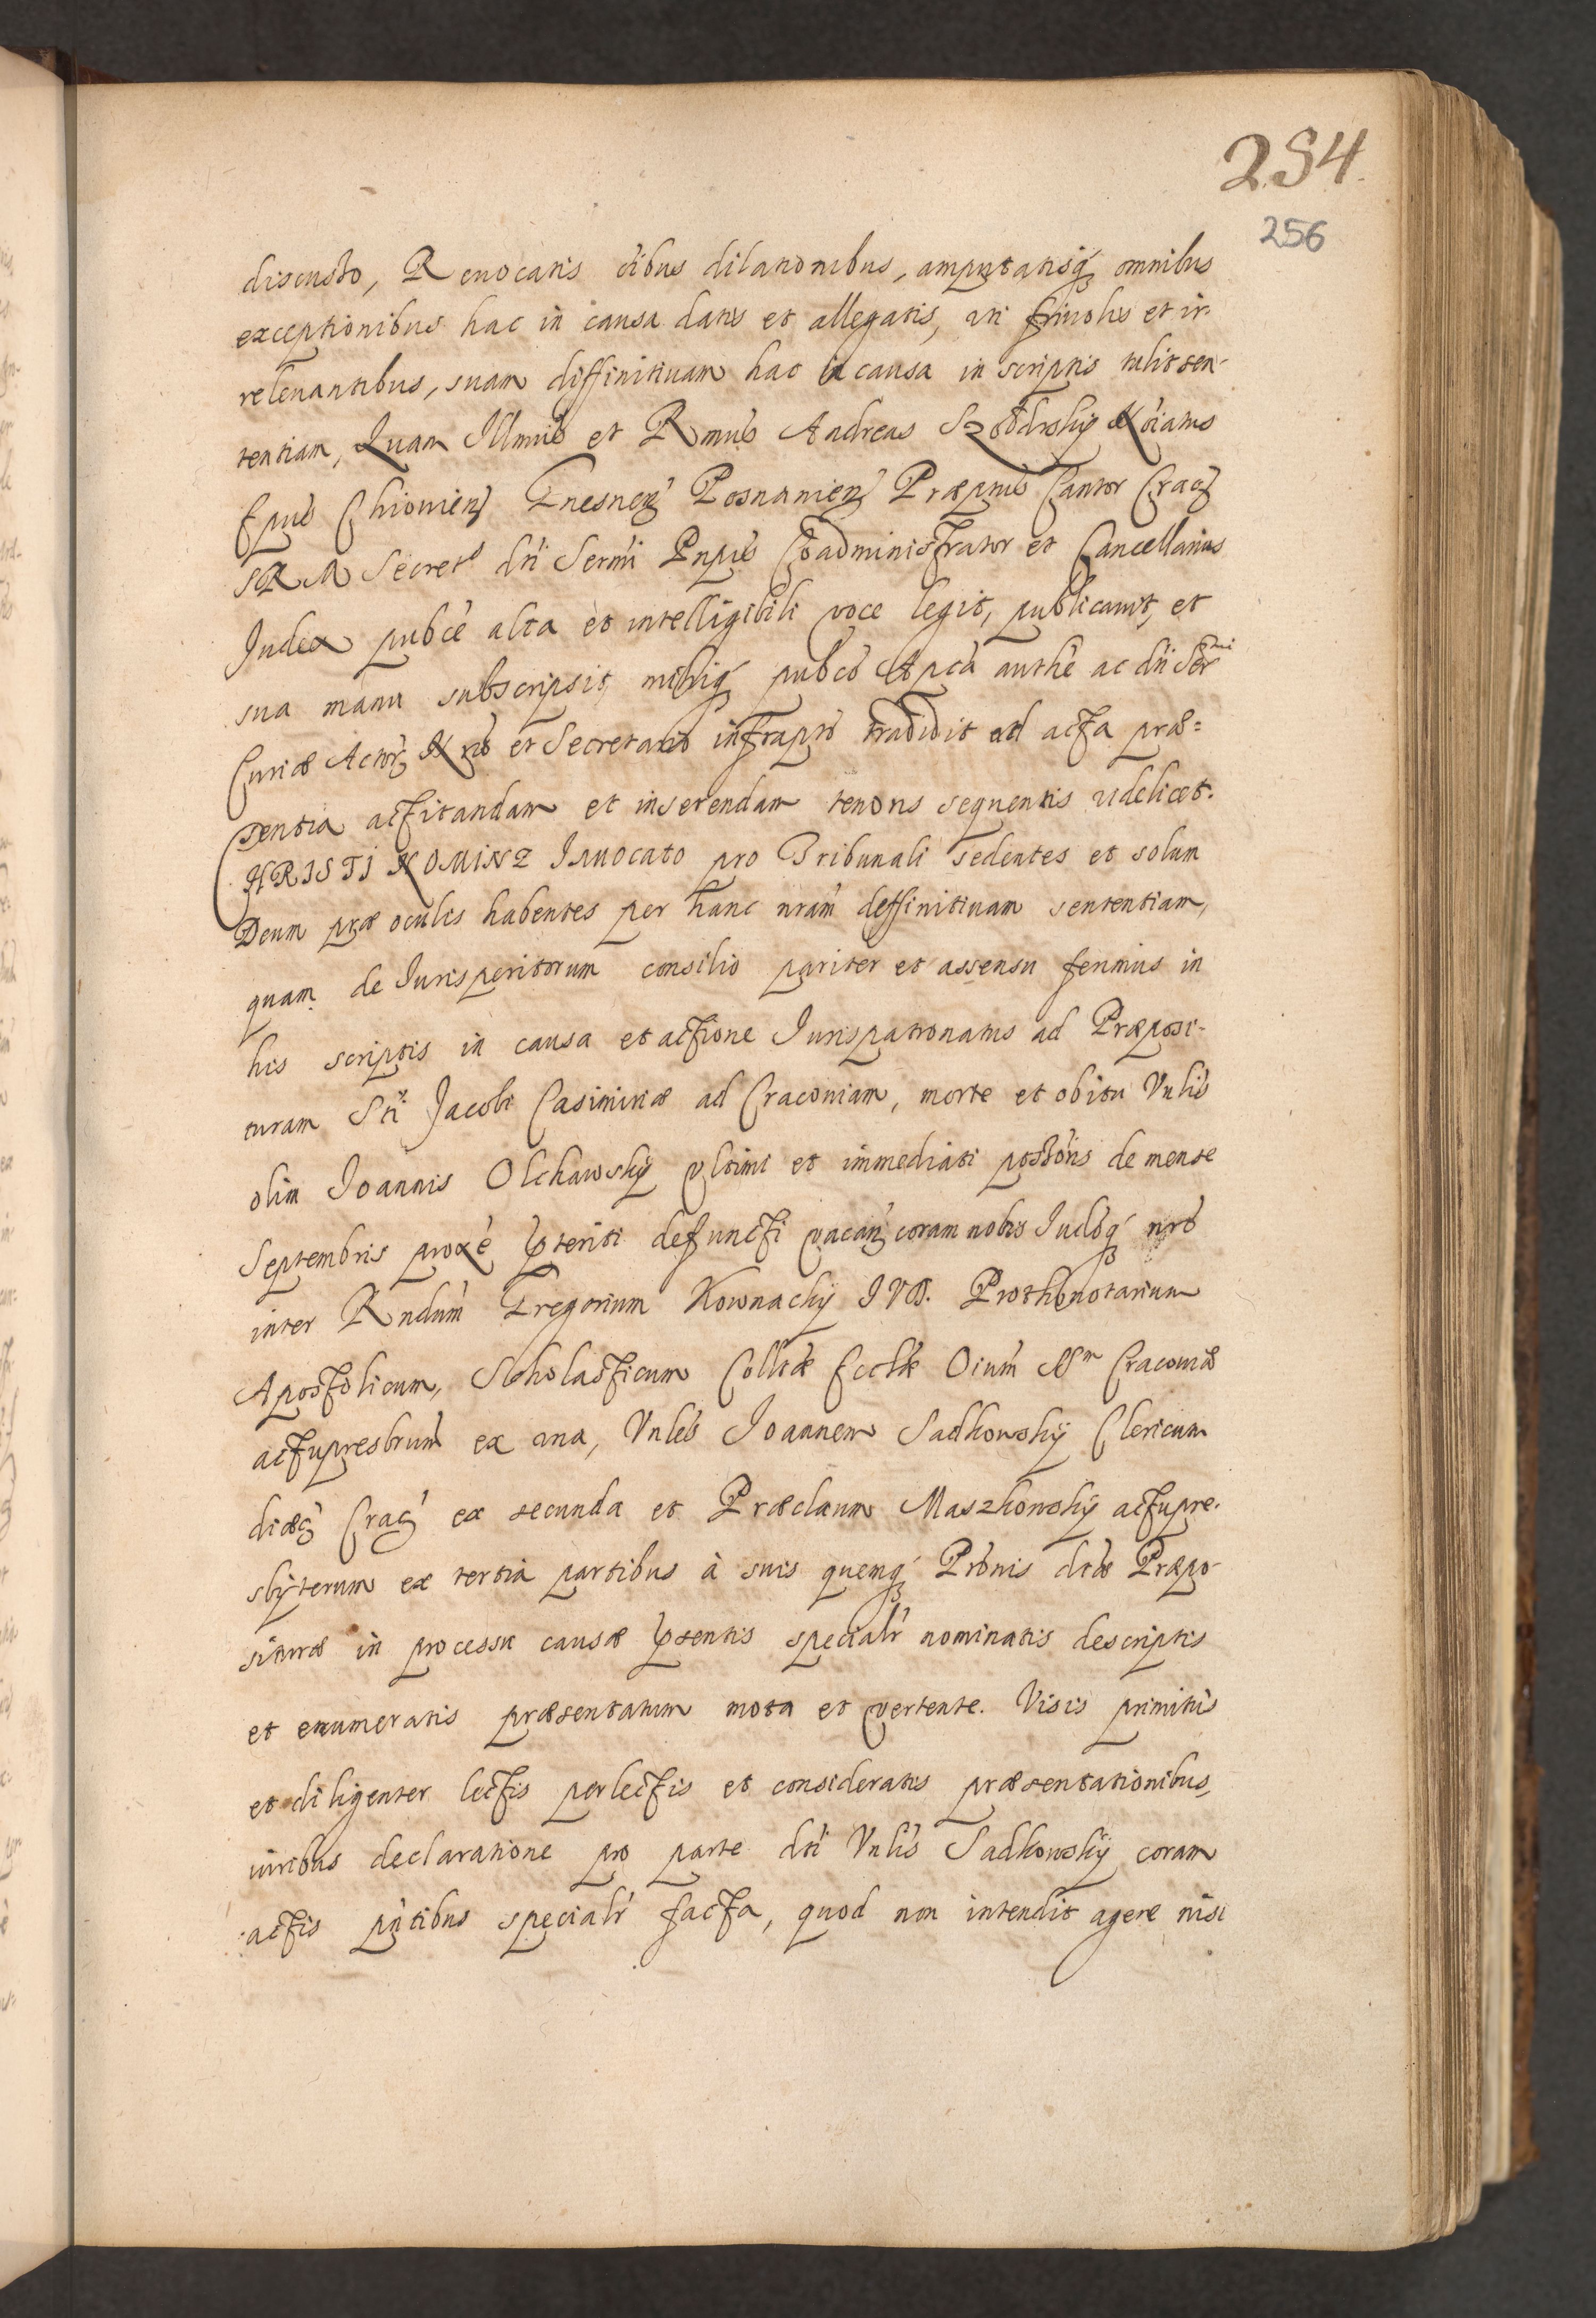 254.
256
discusso, Reuocatis oibus dilationibus, amputatisq́ omnibus
exceptionibus hac in causa datis et allegatis, uti friuolis et ir-
releuantibus, suam diffinitiuam hac in causa in scriptis tulit sen-
tentiam, Quam Illmus et Rmus Andreas Szołdrsky Noiatus
Epus Chiouien Gnesnen Posnanien Præptus Cantor Crac
SRM Secret dni Sermi Pnpis Coadministrator et Cancellarius
Iudex pubce alta et intelligibili voce legit, publicauit, et
sua manu subscripsit mihiq́ pubco Apca authe ac dni Sermi
Curiæ Actor Nrio et Secretario infrapto tradidit ad acta præ=
sentia actitandam et inserendam tenoris sequentis videlicet.
CHRISTI NOMINE Inuocato pro Tribunali sedentes et solum
Deum præ oculis habentes per hanc nram deffinitiuam sententiam,
quam de Iurisperitorum consilio pariter et assensu ferimus in
his scriptis in causa et actione Iurispatronatus ad Præposi-
turam Sti Jacobi Casimiriæ ad Cracouiam, morte et obitu Vnlis
olim Joannis Olchawsky vltimi et immediati possoris de mense
Septembris proxe pteriti defuncti vacan coram nobis Iudoq́ nro
inter Rndum Gregorium Kownacky IVD. Prothonotarium
Apostolicum, Scholasticum Colltæ Ecclæ Oium SSm Cracouiæ
actupresbrum ex una, Vnlem Joannem Sadkowsky Clericum
diæc Crac ex secunda et Præclarum Maszkowsky actupre-
sbyterum ex tertia partibus à suis quemq́ Prŏnis dtæ Præpo-
situræ in processu causæ psentis specialr nominatis descriptis
et enumeratis præsentatum mota et vertente. Visis primitus
et diligenter lectis perlectis et consideratis præsentationibus,
iuribus declaratione pro parte dti Vnlis Sadkowsky coram
actis pntibus specialr facta, quod non intendit agere nisi